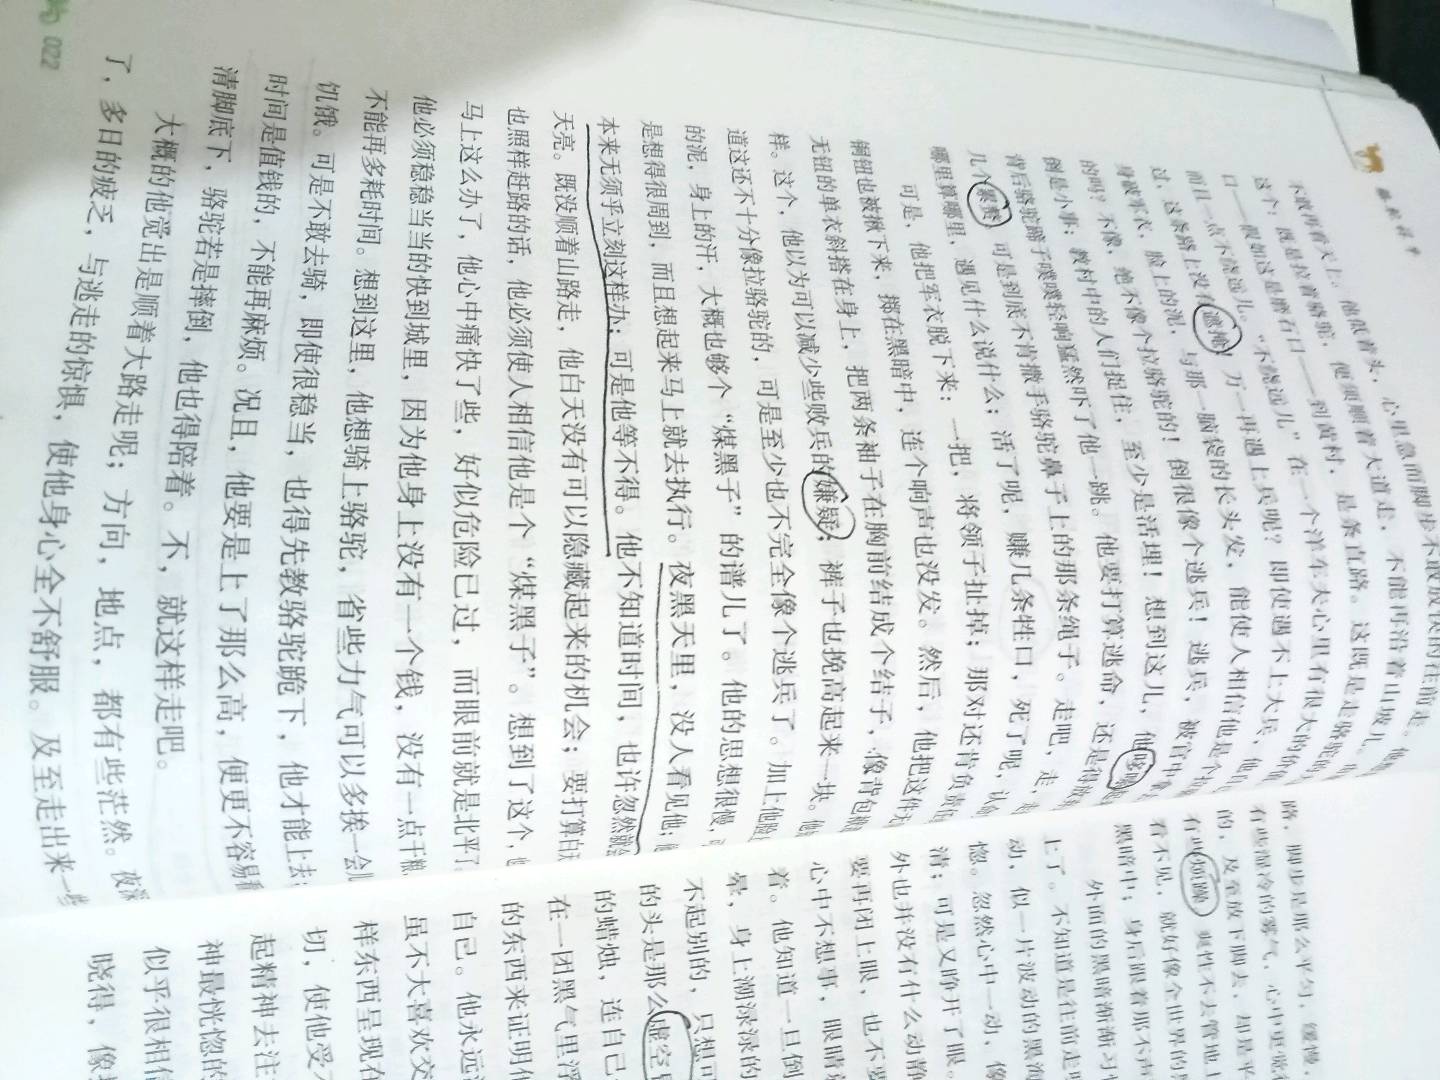 骆驼祥子
不敢再看天上。他低着头，心里急而脚步不敢放快的往前走。
这个：既是拉着骆驼，便须顺着大道走，不能再沿着山坡儿
口——假如这是磨石口——到黄村，是条直路。这既是走骆驼的
而且一点不绕远儿。“不绕远儿”在一个洋车夫心里有很大的价值
过，这条路上没有遮掩！万一再遇上兵呢？即使遇不上大兵，他
身破军衣，脸上的泥，与那一脑袋的长头发，能使人相信他是个
的吗？不像，绝不像个拉骆驼的！倒很像个逃兵！逃兵，被官中拿
倒是小事；教村中的人们捉住，至少是活埋！想到这儿，他哆嗦
背后骆驼蹄子噗噗轻响猛然吓了他一跳。他要打算逃命，还是得放
几个累赘。可是到底不肯撒手骆驼鼻子上的那条绳子。走吧，走，
哪里算哪里，遇见什么说什么；活了呢，赚几条牲口，死了呢，认
可是，他把军衣脱下来：一把，将领子扯掉；那对还肯负责任
铜钮也被揪下来，掷在黑暗中，连个响声也没发。然后，他把这件
无钮的单衣斜搭在身上，把两条袖子在胸前结成个结子，像背包袱
样。这个，他以为可以减少些败兵的嫌疑；裤子也挽高起来一块。他
道这还不十分像拉骆驼的，可是至少也不完全像个逃兵了。加上他脸
的泥，身上的汗，大概也够个“煤黑子”的谱儿了。他的思想很慢，
是想得很周到，而且想起来马上就去执行。夜黑天里，没人看见他；
本来无须乎立刻这样办；可是他等不得。他不知道时间，也许忽然就会
天亮。既没顺着山路走，他白天没有可以隐藏起来的机会；要打算白天
也照样赶路的话，他必须使人相信他是个“煤黑子”。想到了这个，
马上这么办了，他心中痛快了些，好似危险已过，而眼前就是北平了
他必须稳稳当当的快到城里，因为他身上没有一个钱，没有一点干粮
不能再多耗时间。想到这里，他想骑上骆驼，省些力气可以多挨一会儿
饥饿。可是不敢去骑，即使很稳当，也得先教骆驼跪下，他才能上去
时间是值钱的，不能再麻烦。况且，他要是上了那么高，便更不容易看
清脚底下，骆驼若是摔倒，他也得陪着。不，就这样走吧。
大概的他觉出是顺着大路走呢；方向，地点，都有些茫然。夜深
了，多日的疲乏，与逃走的惊惧，使他身心全不舒服。及至走出来一些
022
路，脚步是那么平匀，缓慢，
有些湿冷的雾气，心中更觉
的，及至放下脚去，却是平
有些烦躁，爽性不去管地上
看不见，就好像全世界的黑
黑暗中；身后跟着那不声
外面的黑暗渐渐习
上了。不知道是往前走
动，似一片波动的黑海
惚。忽然心中一动，像
清；可是又睁开了眼。
外也并没有什么动静
要再闭上眼，也不要
心中不想事，眼睛
着。他知道一旦倒
晕，身上潮渌渌的
不起别的，只想可
的头是那么虚空
的蜡烛，连自己
在一团黑气里浮
的东西来证明他
自己。他永远
虽不大喜欢交
样东西呈现在
切，使他受
起精神去注
神最恍惚的
似乎很相信
晓得，像